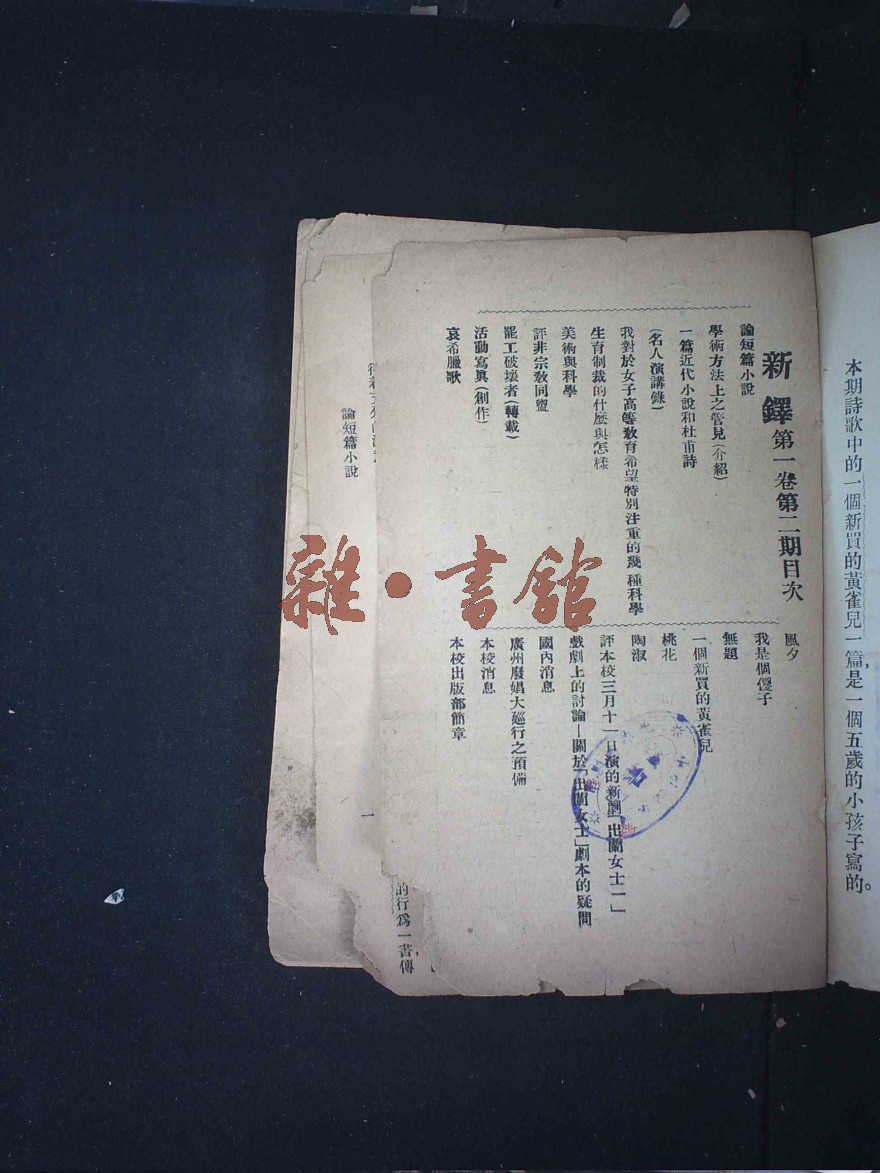 本期詩歌中的一個新買的黃雀兒一篇，是一個五歲的小孩子寫的。
新鐸第一卷第二期目次
論短篇小說
學術方法上之管見(介紹)
一篇近代小說和杜甫詩
(名人演講錄)
我對於女子高等敎育希望特別注重的幾種科學
生育制裁的什麼與怎樣
美術與科學
評非宗敎同盟
罷工破壞者(轉載)
活動寫眞(創作)
哀希臘歌
風夕
我是個傻子
無題
一個新買的黃雀兒
桃花
陶淑
評本校三月十一日演的新劇「出關女士一」
戲劇上的討論—關於「出關女士」劇本的疑問
國內消息
廣州廢娼大巡行之預備
本校消息
本校出版部簡章
論短篇小說
的行爲一書，傳
雜·書館